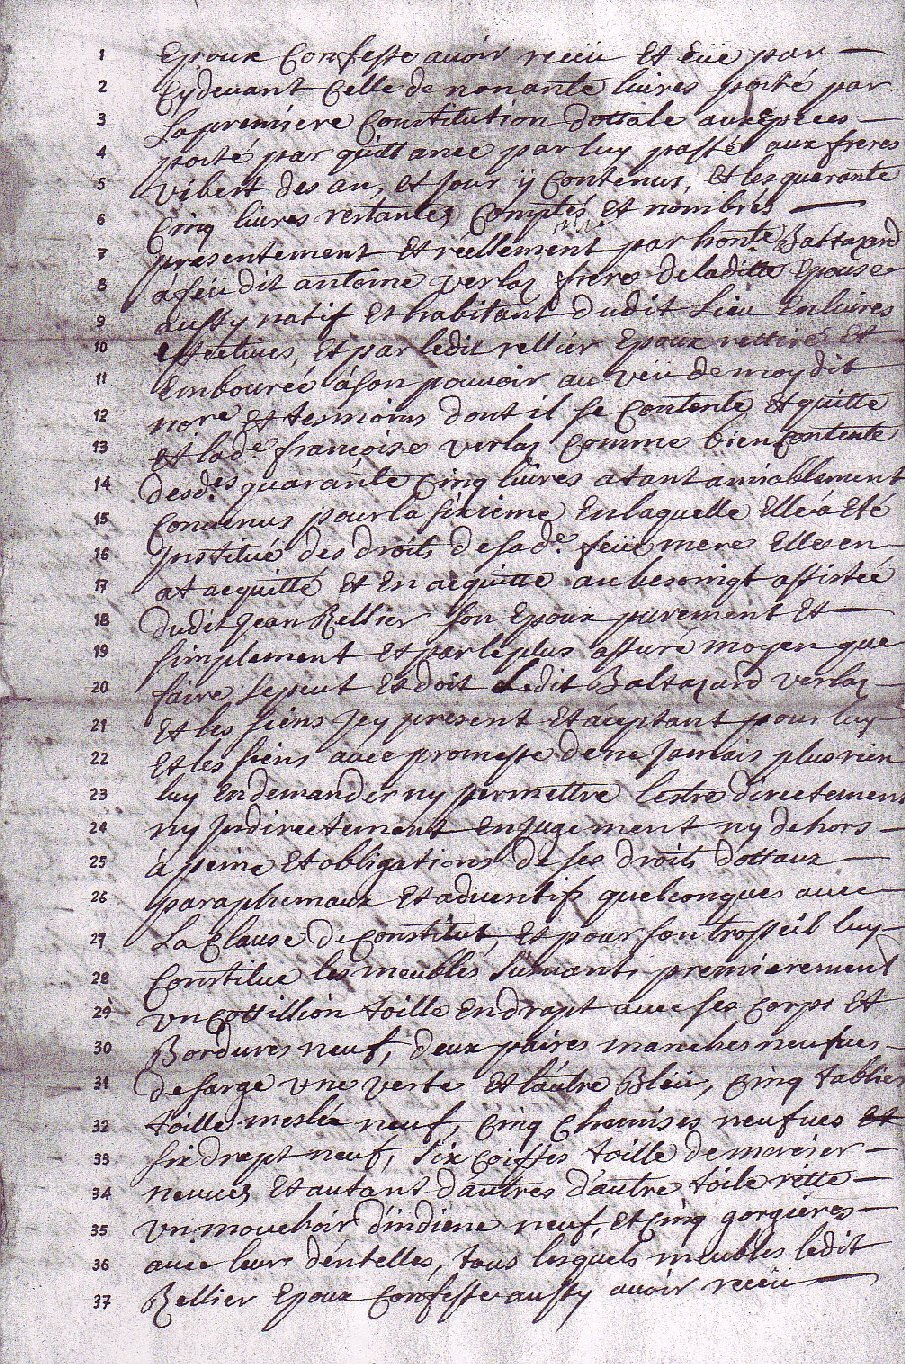 1 Epoux Confesse avoir reçüu et eüe par
2 Cydevant Celle de nonante livres porté par
3 La premiere Constitution dottale aux epces
4 porté par quittance par luy passée aux freres
5 Vibert des an, et jour ÿ Contenus, et les quarante
6 Cinq livres restantes Comptés et nombrés
7 presentement et reellement par honte Baltazard
8 à feu dit antoine Verlaz frere de laditte Epouse
9 aussy natif et habitant dudit Lieu En livres
10 effectives, et par ledit rellier Epoux rettiré et
11 Embourcé à son pouvoir au Veü de moy dit
12 nore et tesmoins dont il se Contente, et quitte
13 et lade françoise verlaz Comme bien Contente
14 desdes quarante Cinq livres atant amiablement
15 Convenus pour la sixieme En laquelle Elle à Eté
16 Institué des droits de sade feüe mere Elle sen
17 at acquitté et En acquitte au besoingt assistée
18 dudit Jean Rellier son Epoux purement et
19 simplement et par le plus assuré moyen que
20 faire se peut et doit Ledit Baltazard verlaz
21 et les siens Jcy present et acceptant pour luy
22 et les siens avec promesse de ne Jamais plus rien
23 luy En demander ny permettre l'estre directement
24 ny Jndirectement en jugement ny dehors
25 à peine et obligations de ses droits dottaux
26 paraphernaux et adventifs quelconques avec
27 La Clause de Constitut, et pour son trossél luy
28 Constitue les meubles suivants premierement
29 vn Cottillion toille En drapt avec ses Corps et
30 Bordures neuf, deux paires manches neufves
31 de sarge vne verte et l'autre Bleü, Cinq tablier
32 toille meslée neuf, Cinq Chemises neufves et
33 six drapt neuf, Six Coiffes toille de mercier
34 neuves, et autant d'autres d'autre toile ritte
35 vn mouchoir d'indiene neuf, et Cinq gorgieres
36 avec leur dentelles, tous lesquels meubles ledit
37 Rellier Epoux Confesse aussy avoir reçeü